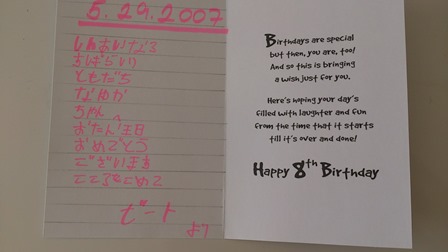 5.29.2007
しんあいなる
ともだち
なゆか
ちゃんへ
おたん生日
おめでとう
こころをこめて
より
Birthdays are special
but then, you are, too!
And so this is bringing
a wish just for you.
Here's hoping your day's
filled with laughter and fun
from the time that it starts
till it's over and done!
Happy 8th Birthday